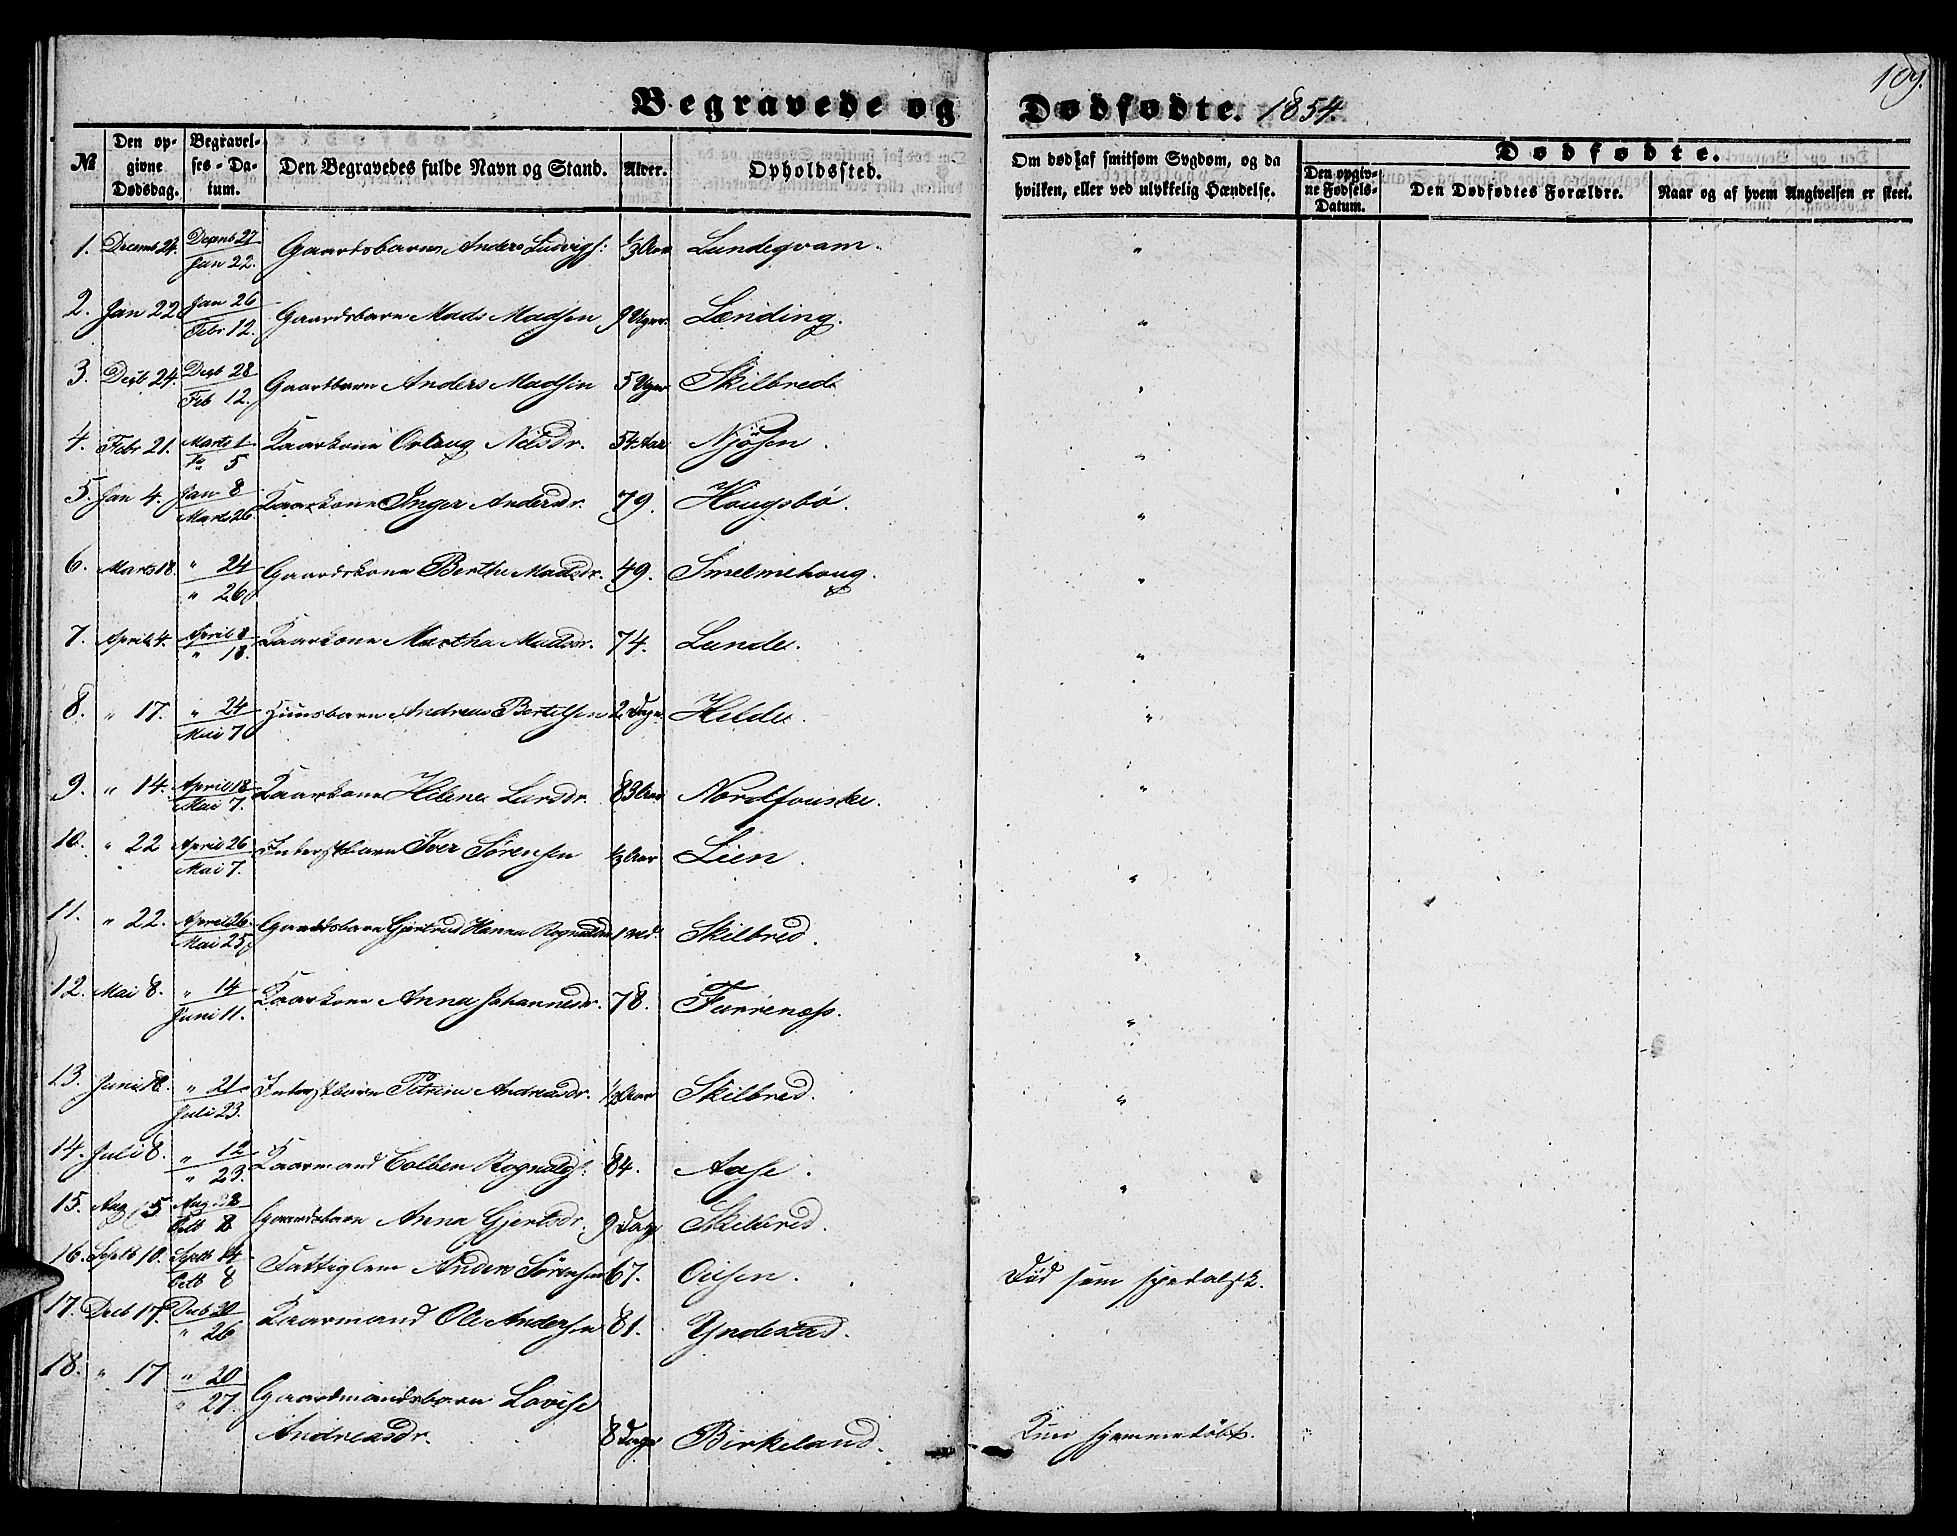 109.
Begravede og Dødfødte. 1854.
№
Den opgivne Dødsdag.
Begravelses-Datum.
Den Begravedes fulde Navn og Stand.
Alder.
Opholdssted.
Om død af smitsom Sygdom, og da hvilken, eller ved ulykkelig Hændelse.
Dødfødte.
Den opgivne Fødsels-Datum.
Den Dødfødtes Forældre.
Naar og af hvem Angivelsen er skeet.
1. Decemb 24. 27 / Jan 22. Gaardsbarn Anders Ludvigs: ½ Aar Lundeqvam. "
2. Jan 22 Jan 26 / Febr 12. Gaardsbarn Mads Madsen 9 Uger. Lending. "
3. 24. 28 / Feb 12. Gaardbarn Anders Madsen 5 Uger Skilbred. "
4. Febr 21. Marts 1 / 5 Kaarkone Nilsdr. 54 Aar Njøsen. "
5. Jan 4. Jan 8 / Marts 26 Kaarkone Inger Andersdr. 79. Hougsbø. "
6. Marts 18. " 24 / " 26 Gaardskone Berthe Madsdr. 49. Smelmehoug. "
7. April 4. April 8 / " 18. Kaarkone Martha Madsdr. 74. Lunde. "
8. " 17. " 24 / Mai 7 Huusbarn Andreas Bertelsen 2 Dage Helde. "
9. " 14. April 18 / Mai 7. Kaarkone Helene Larsdr. 83 Aar Nordfouske. "
10. " 22 April 26 / Mai 7. Inderstbarn Iver Sørensen ½ Aar Lien. "
11. " 22. April 26. / Mai 25 Gaardsbarn Gjertrud Hanna 1 Skilbred. "
12. Mai 8. " 14 / Juni 11. Kaarkone Anna Johannesdr. 78. Furreness. "
13. Juni 18. " 21 / Juli 23. Inderstbarn Petrine Andreasdr. ½ Aar Skilbred. "
14. Juli 8. " 12 / " 23. Kaarmand Colben Rognalds: 84. Aase. "
15. Aug 5 Aug 8 / Octb 8 Gaardsbarn Anna Gjertsdr. 9 Dage Skilbred. "
16. Septb 10. Septb 14 / Octb 8 Fattiglem Anders Sørensen 67. Oilsen. Død som spedalsk.
17. Decb 17. Decb 20 / " 26 Kaarmand Ole Andersen 81. Yndestad.
18. " 17 " 20 / " 27. Gaardmandsbarn Lovise
Andreasdr. 8 Dage Birkeland. Kun hjemmedøbt.